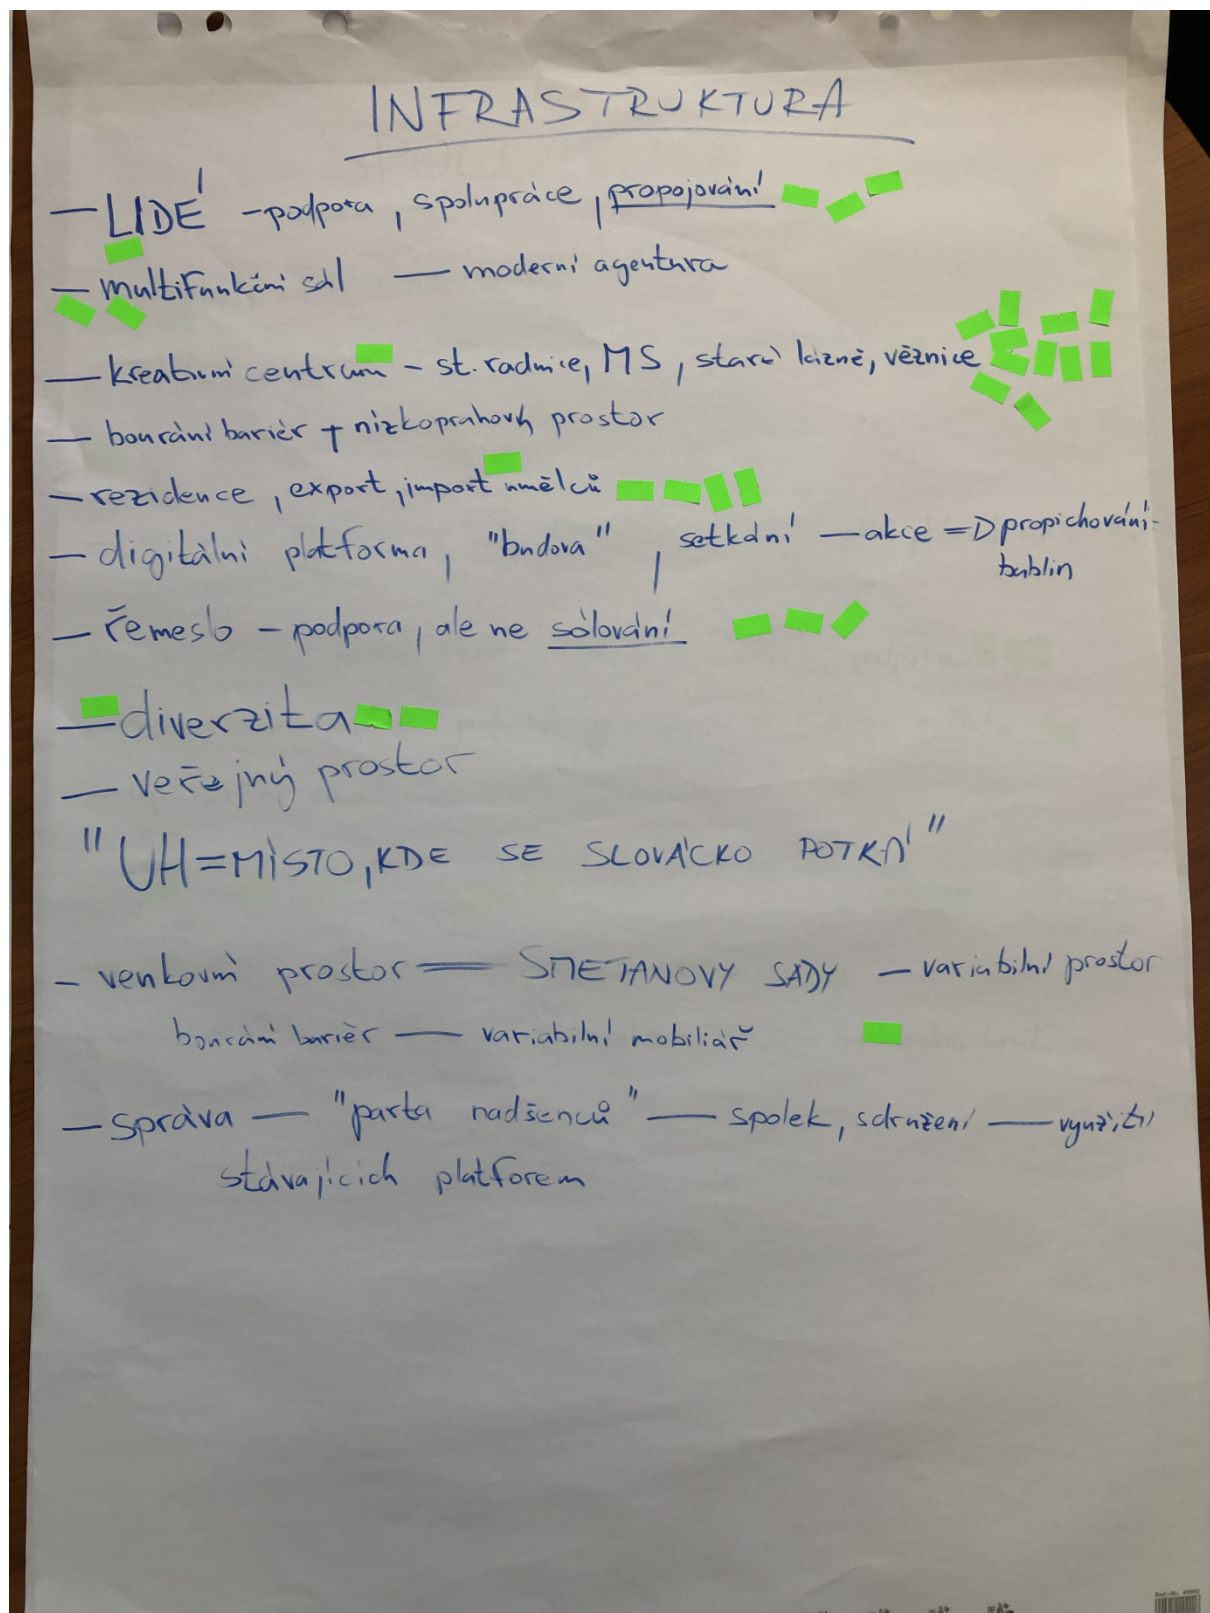 INFRASTRUKTURA
— LIDÉ - podpora, spolupráce, propojování
— multifunkční sál — moderní agentura
— kreativní centrum - st. radnice, MS, staré lázně, věznice
— bourání bariér + nízkoprahový prostor
— rezidence, export, import umělců
— digitální platforma, "budova", setkání — akce => propichování
bublin
— řemeslo - podpora, ale ne sólování
— diverzita
— veřejný prostor
"UH=MÍSTO, KDE SE SLOVÁCKO POTKÁ"
- venkovní prostor = SMETANOVY SADY - variabilní prostor
bourání bariér — variabilní mobiliář
— správa — "parta nadšenců" — spolek, sdružení — využití
stávajících platforem